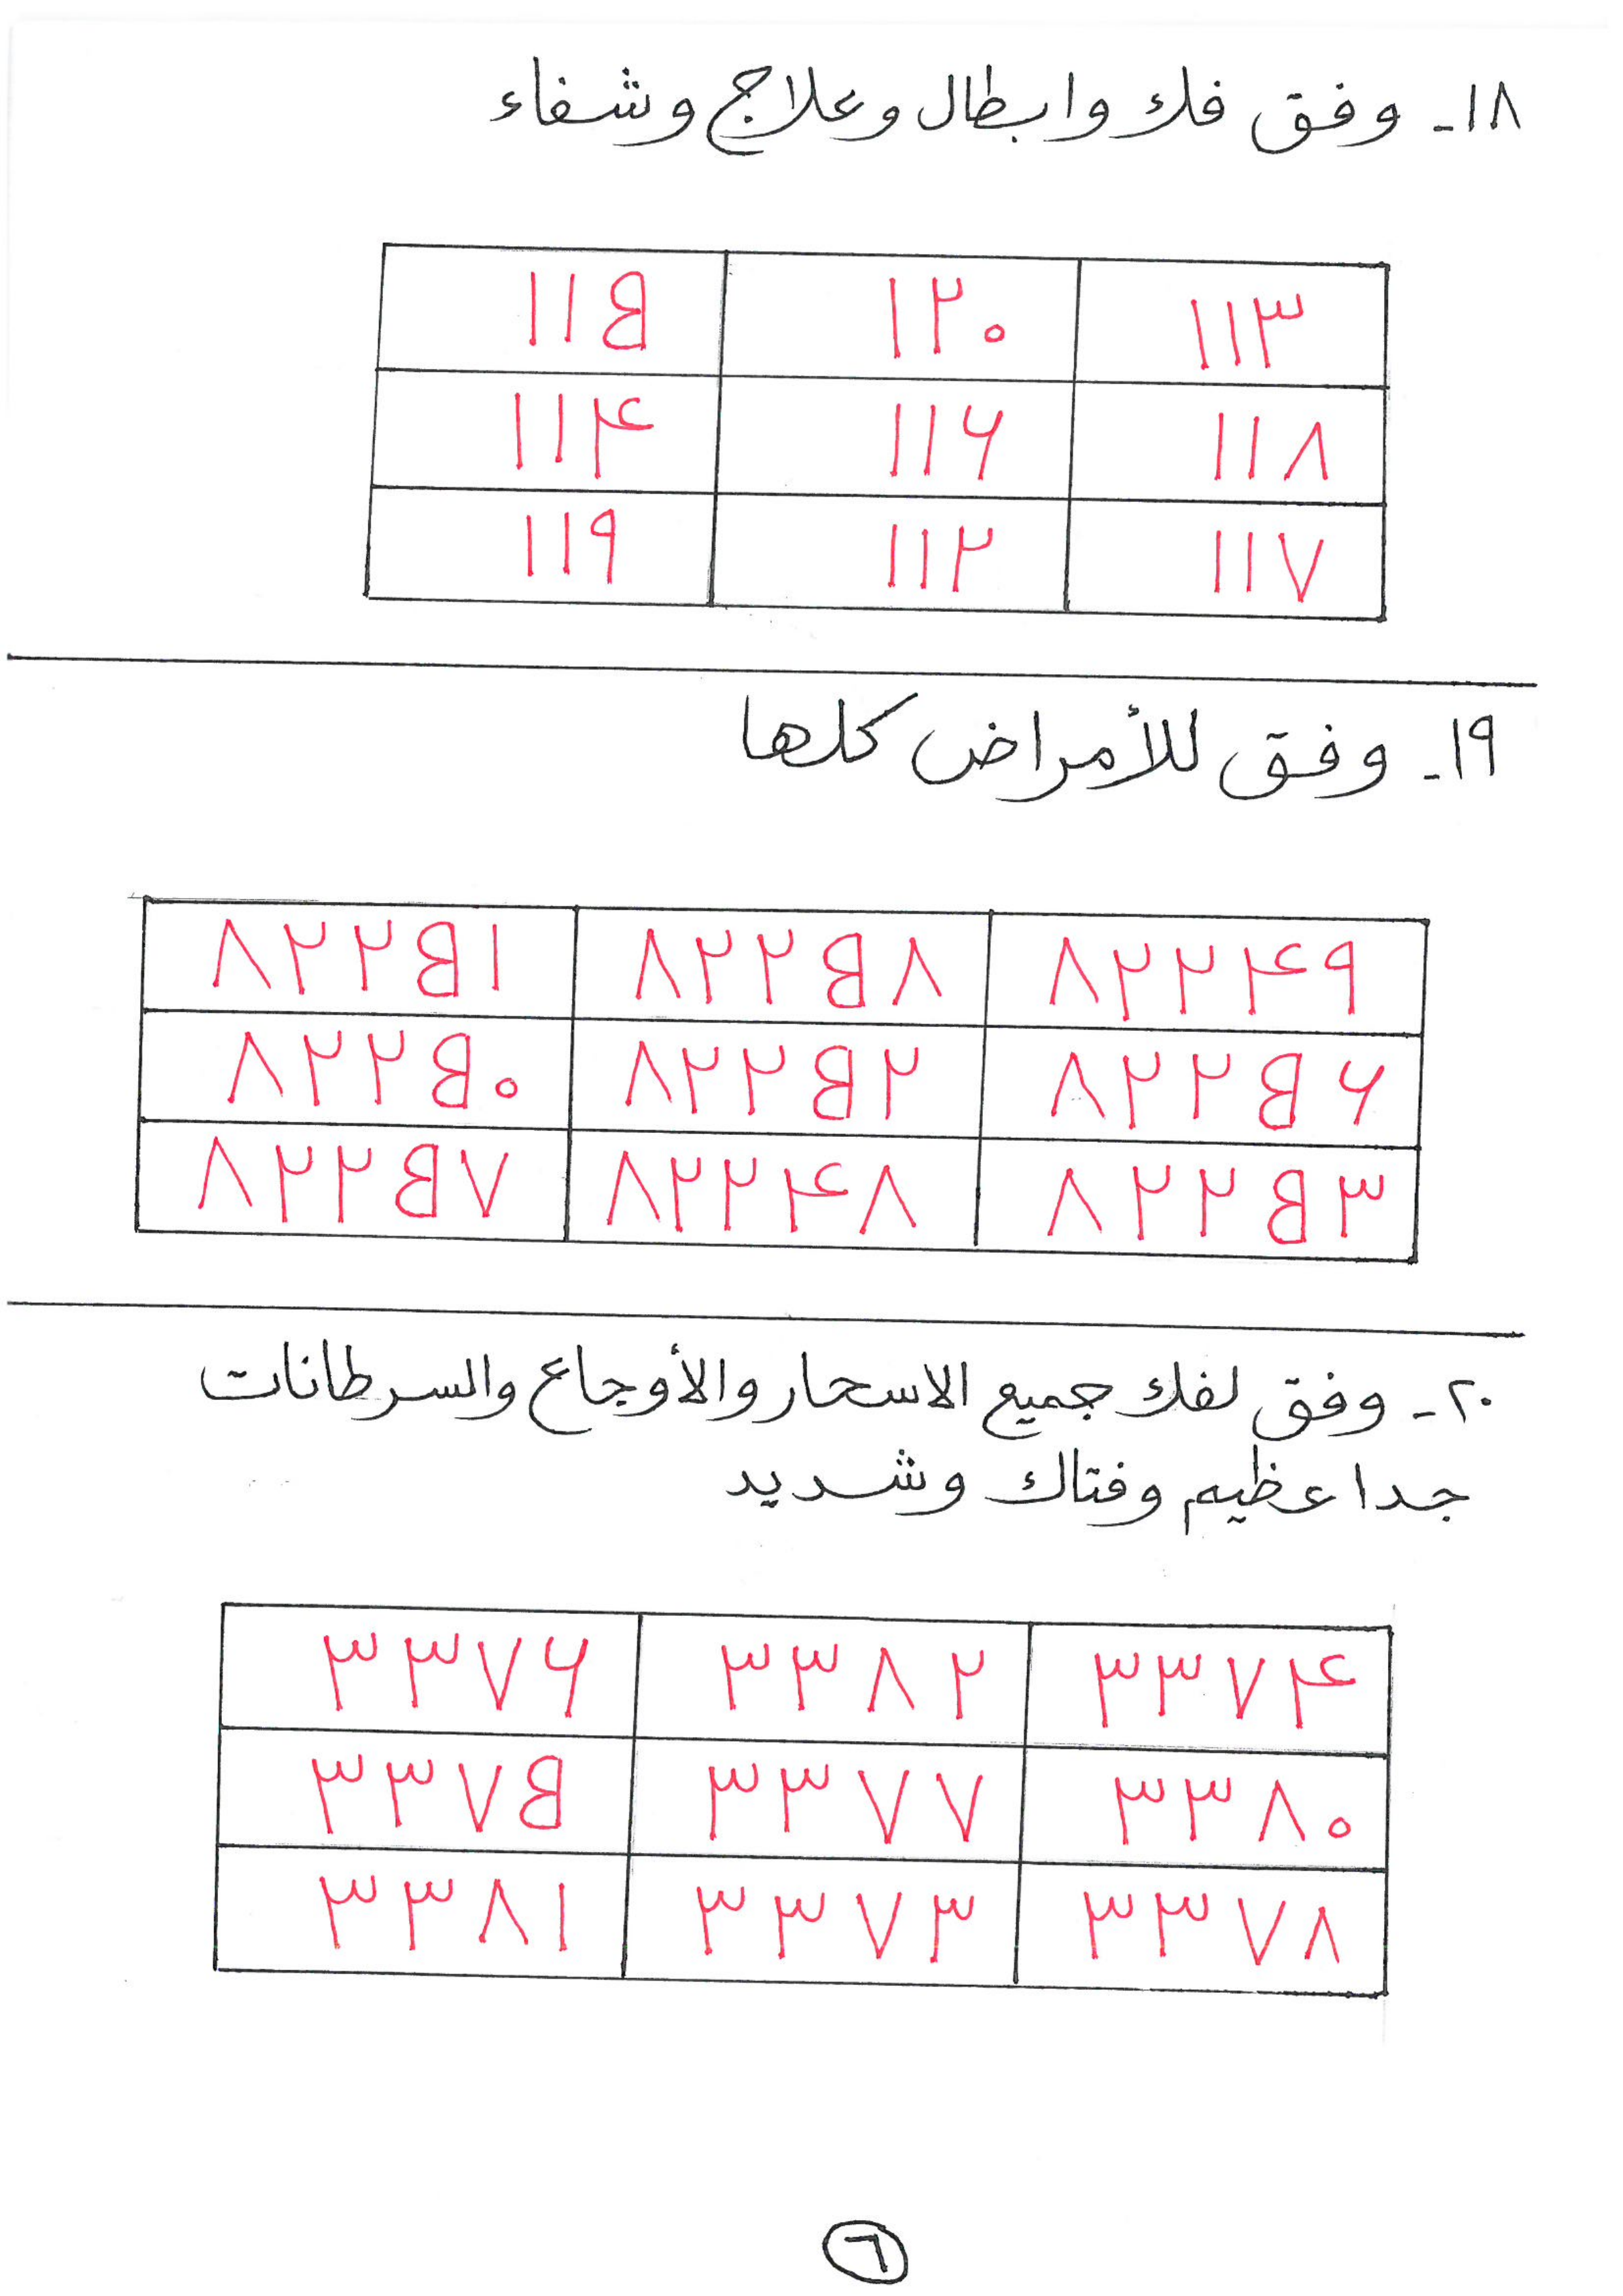 ١٨- وفق فك وابطال وعلاج وشفاء
١١٣ ١٢٠ ١١٥
١١٨ ١١٦ ١١٤
١١٧ ١١٢ ١١٩
١٩- وفق للأمراض كلها
٨٢٢٤٩ ٨٢٢٥٨ ٨٢٢٥١
٨٢٢٥٦ ٨٢٢٥٢ ٨٢٢٥٠
٨٢٢٥٣ ٨٢٢٤٨ ٨٢٢٥٧
٢٠- وفق لفك جميع الاسحار والأوجاع والسرطانات
جدا عظيم وفتاك وشديد
٣٣٧٤ ٣٣٨٢ ٣٣٧٦
٣٣٨٠ ٣٣٧٧ ٣٣٧٥
٣٣٧٨ ٣٣٧٣ ٣٣٨١
٦